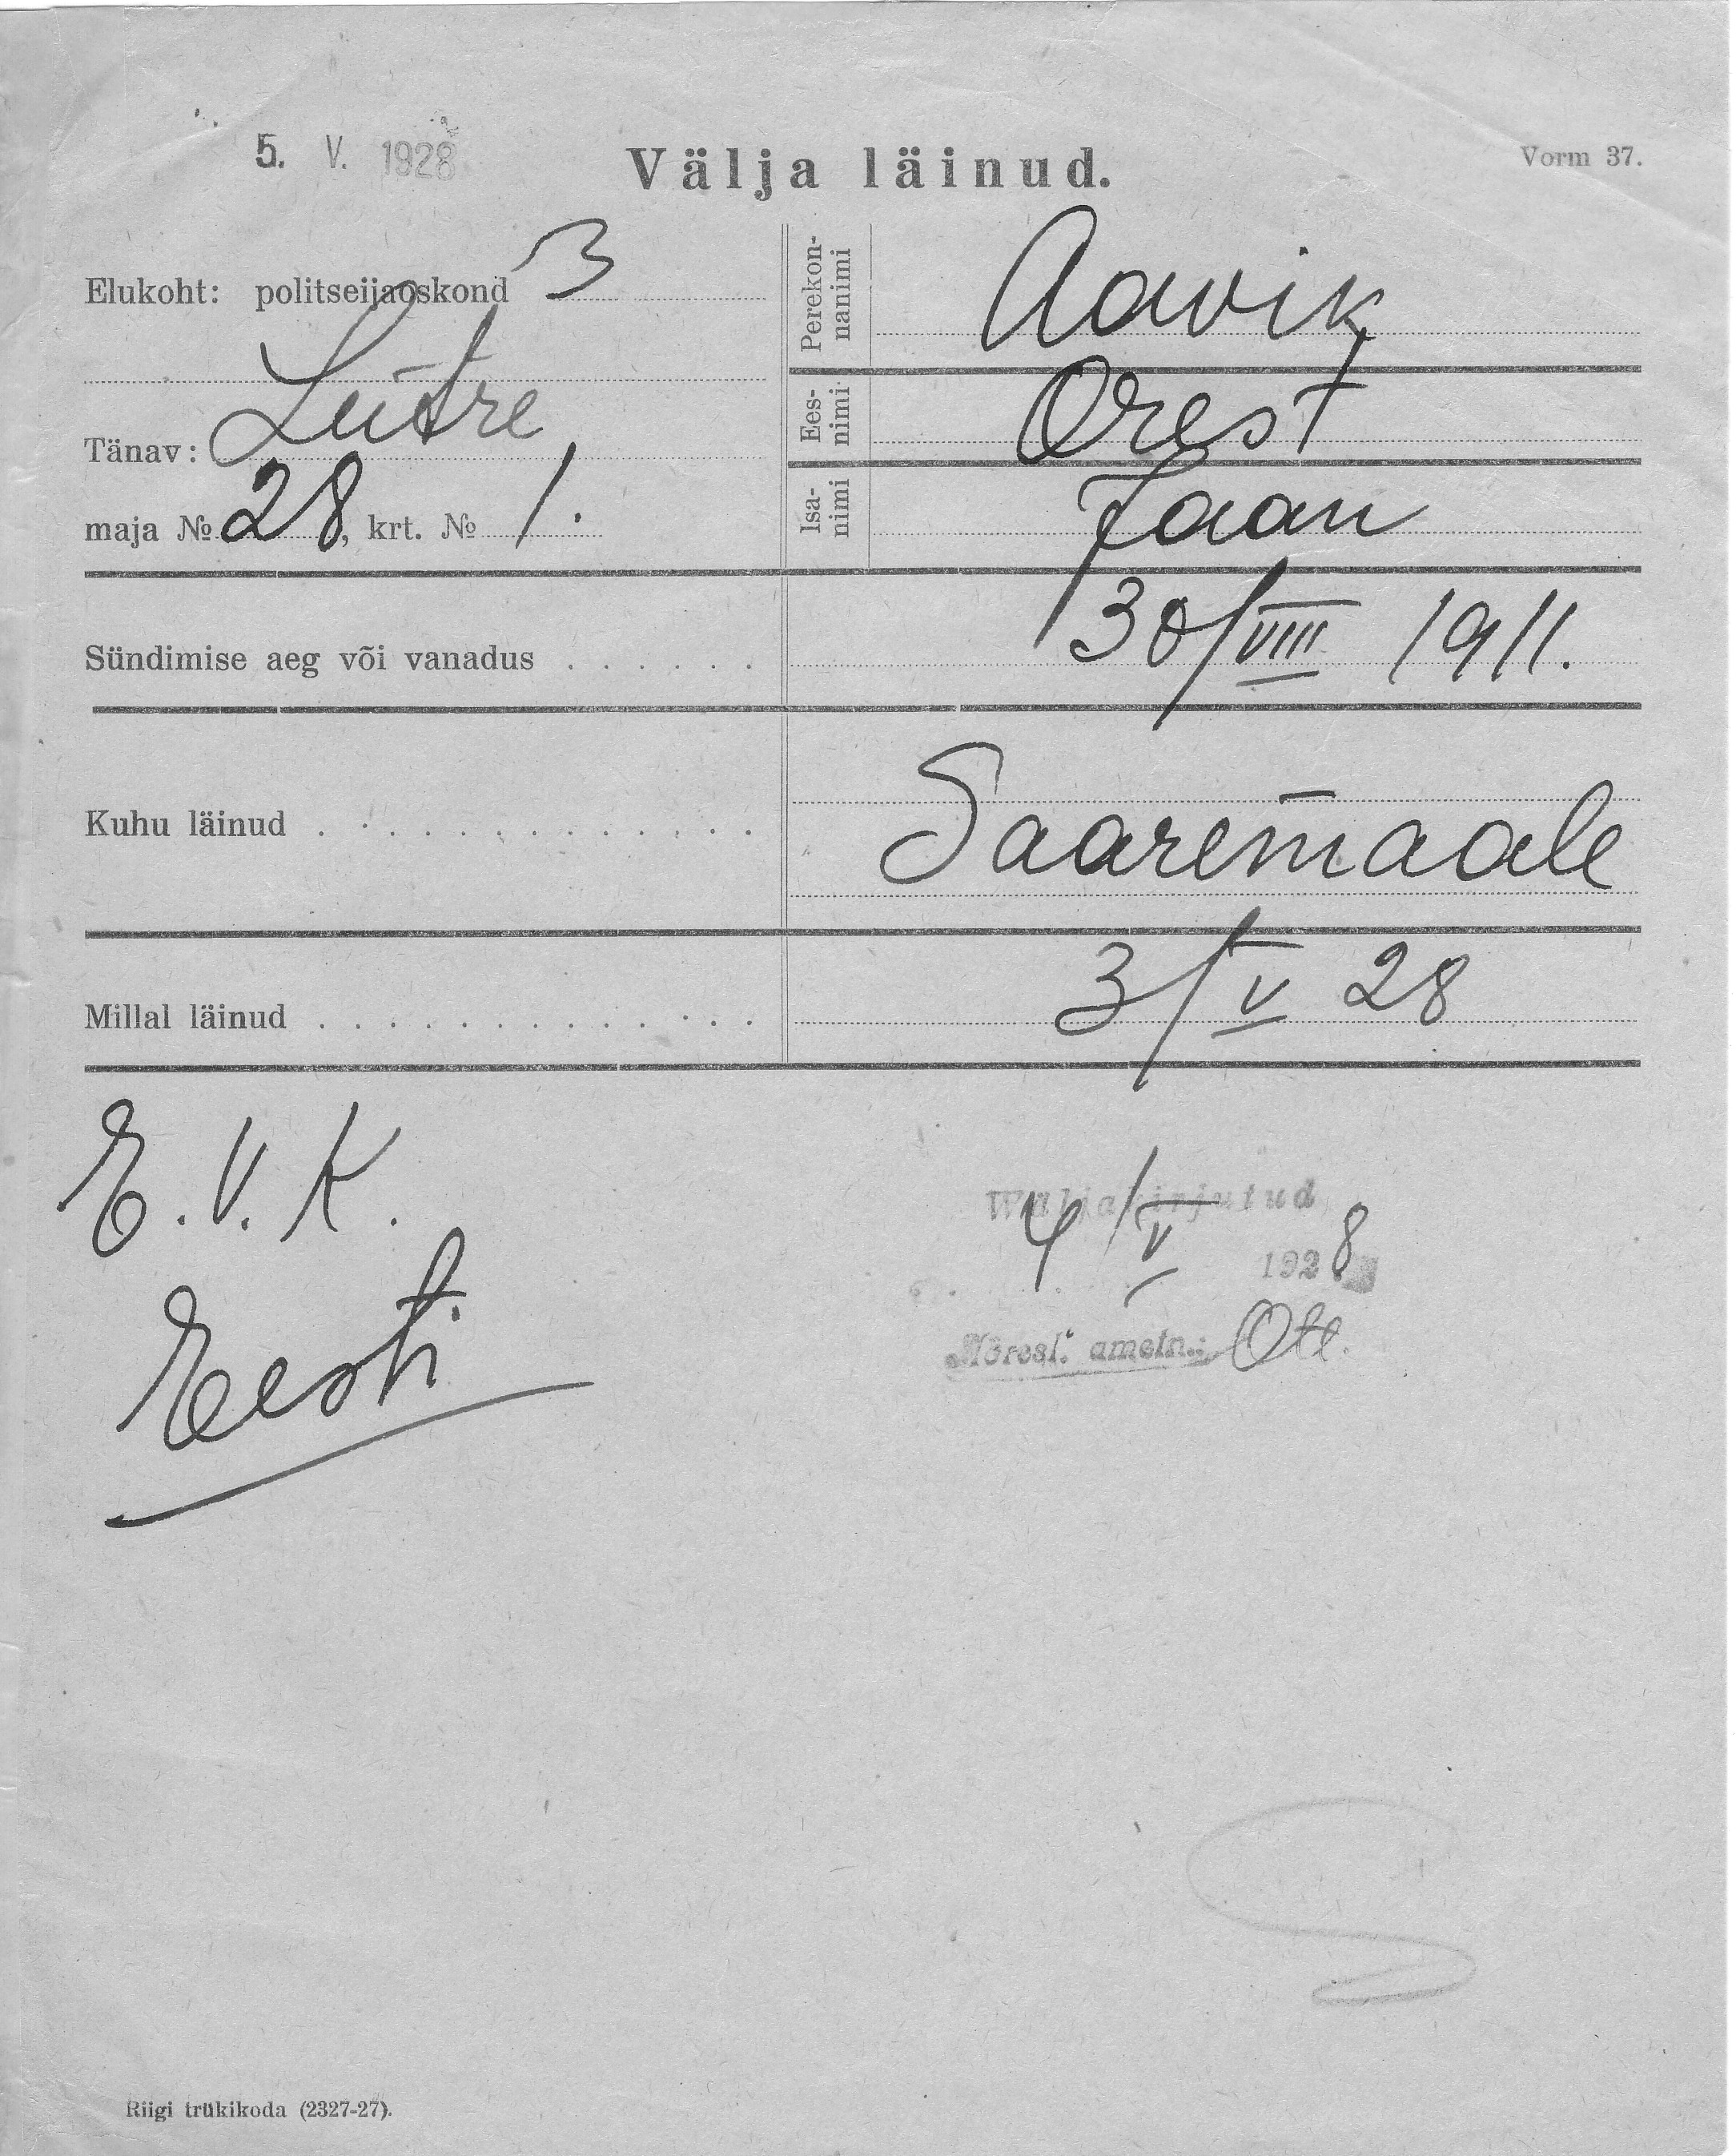 5. V. 1928
Välja läinud.
Vorm 37.
Elukoht: politseijaoskond 3
Tänav: Lüütre
maja № 28, krt. № 1.
Perekon-
nanimi
Aavik
Ees-
nimi
Orest
Isa-
nimi
Jaan
Sündimise aeg või vanadus 30/VIII 1911.
Kuhu läinud Saaremaale
Millal läinud 3/V 28
E. V. K.
Eesti
Wäljakirjutud
4/V 1928
ametn.: Ott.
Riigi trükikoda (2327-27).